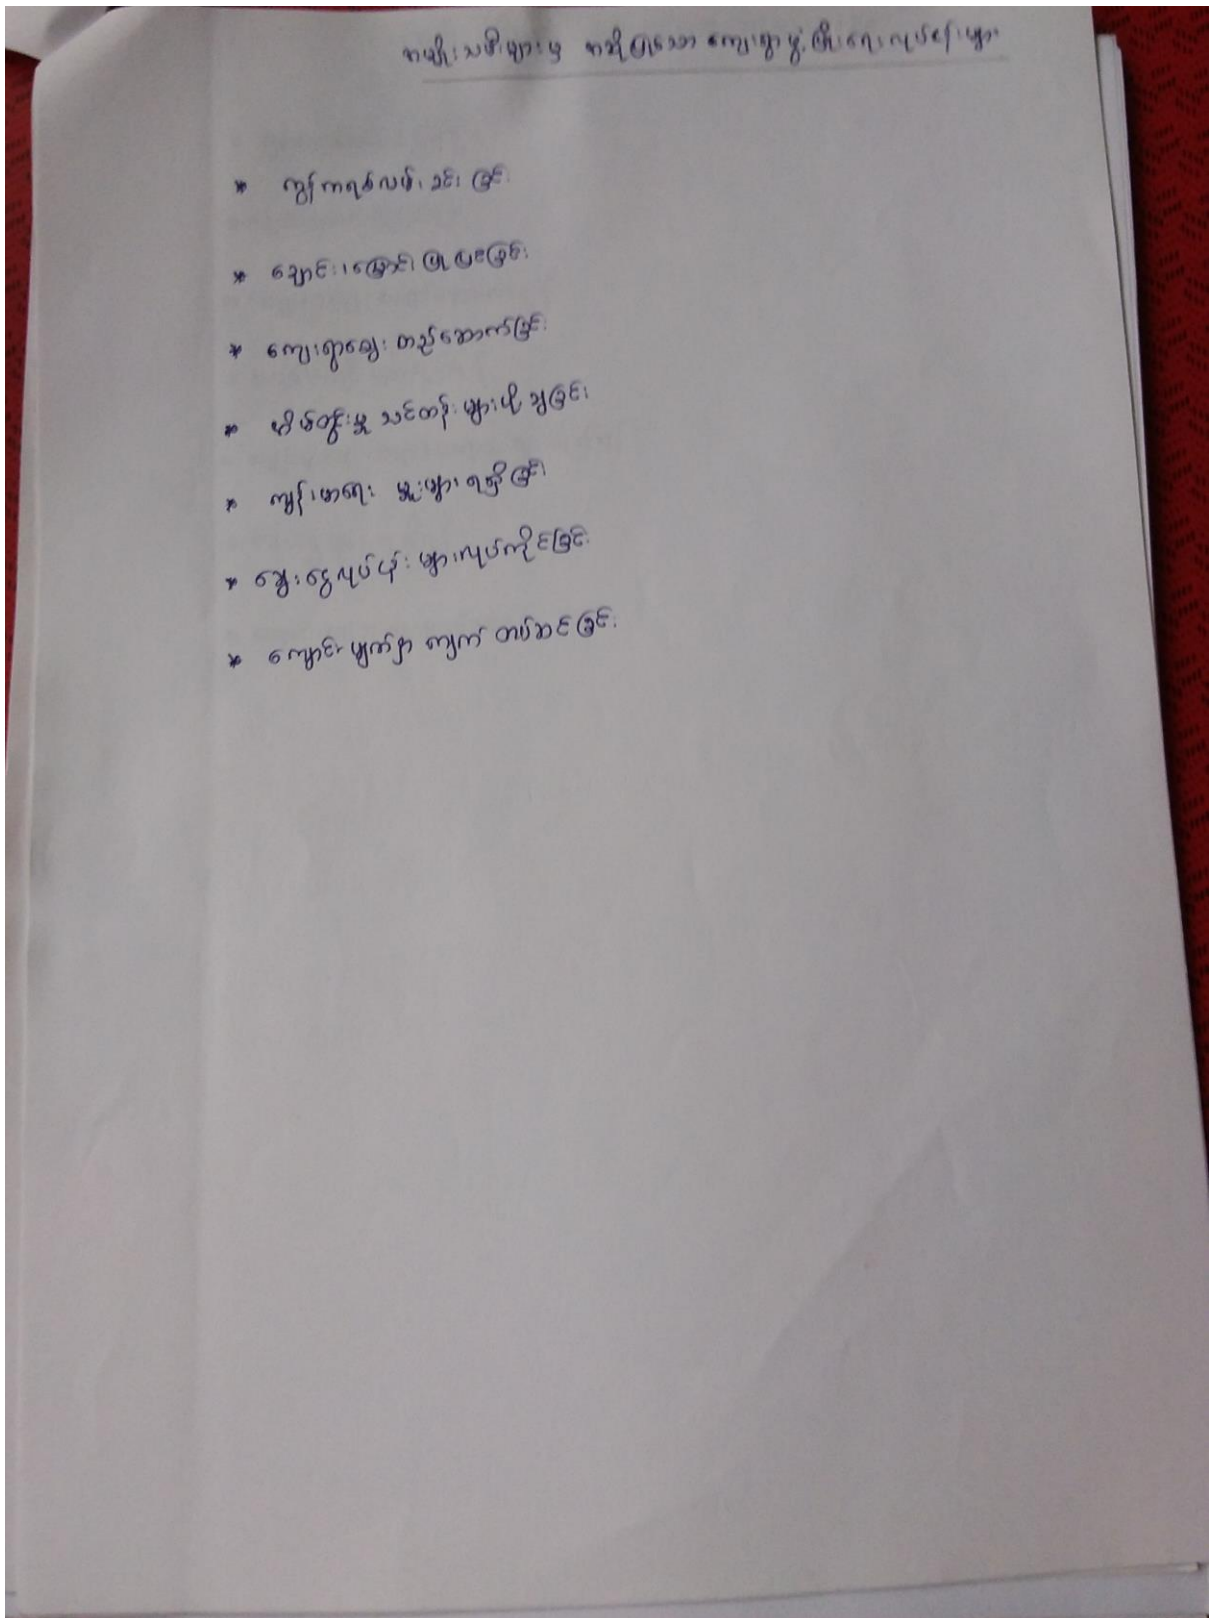 အမျိုးသမီးများမှ အဆိုပြုသော ကျေးရွာဖွံ့ဖြိုးရေးလုပ်ငန်းများ
* ကွန်ကရစ်လမ်းခင်းခြင်း
* ချောင်းမြောင်းပြုပြင်ခြင်း
* ကျေးရွာဈေး တည်ဆောက်ခြင်း
* အိမ်တွင်းမှု သင်တန်းများပို့ချခြင်း
* ကျန်းမာရေး မှူးများ ရရှိခြင်း
* ချွေးငွေလုပ်ငန်း များလုပ်ကိုင်ခြင်း
* ကျောင်း မျက်နှာ ကျက် တပ်ဆင်ခြင်း